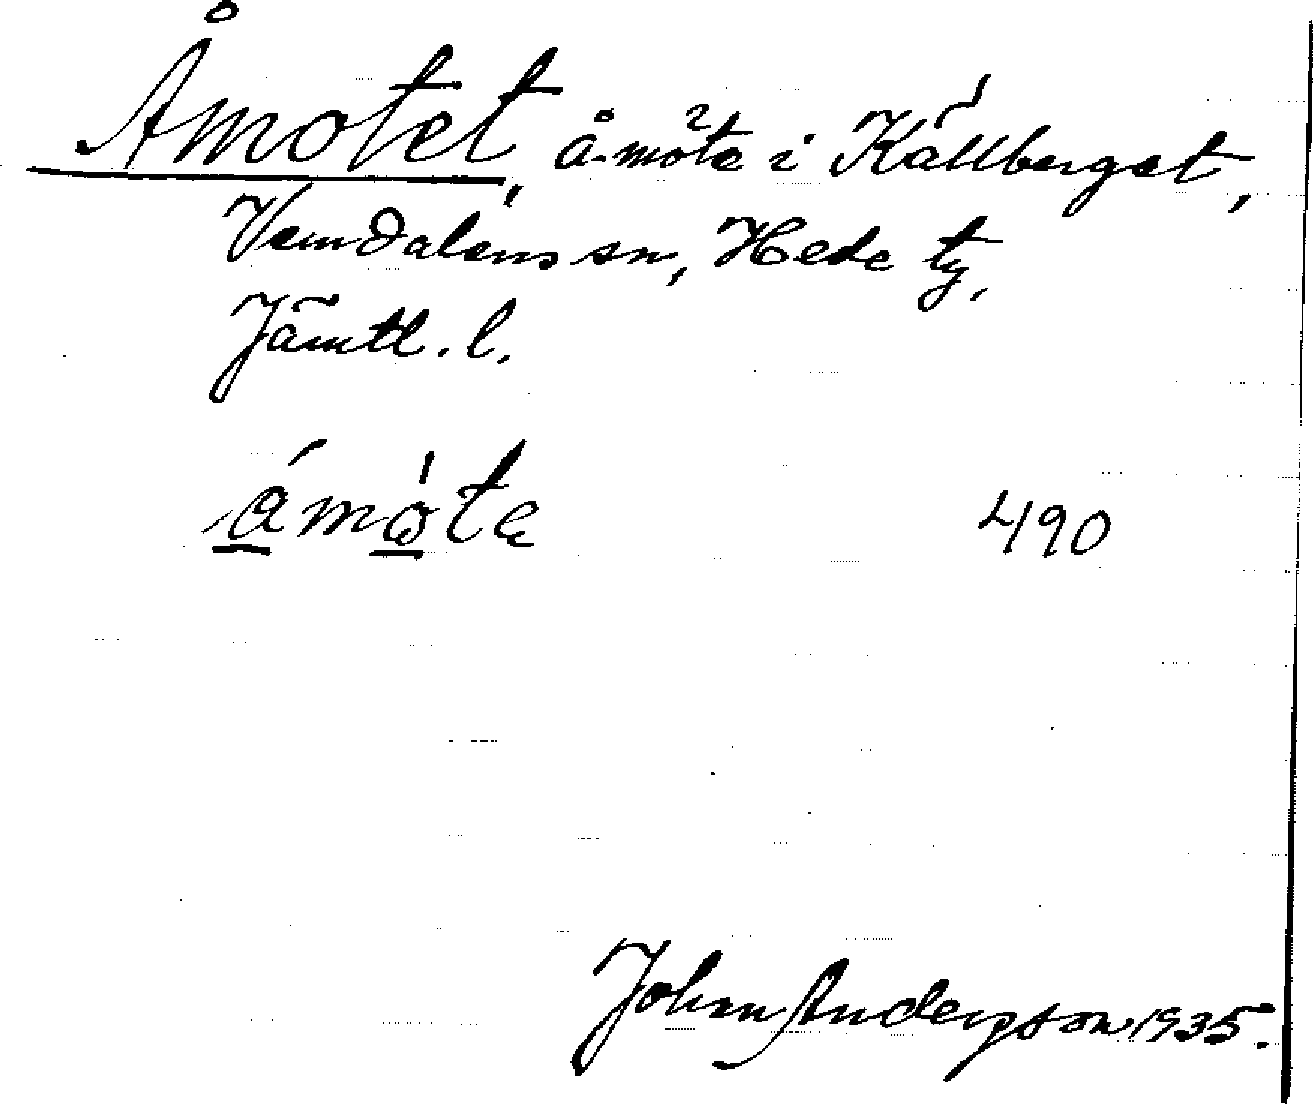 Åmotet, å-möte i Källberget,
Vemdalens sn, Hede tg,
Jämtl. l.
ámòte 490
Johan Andersson 1935.